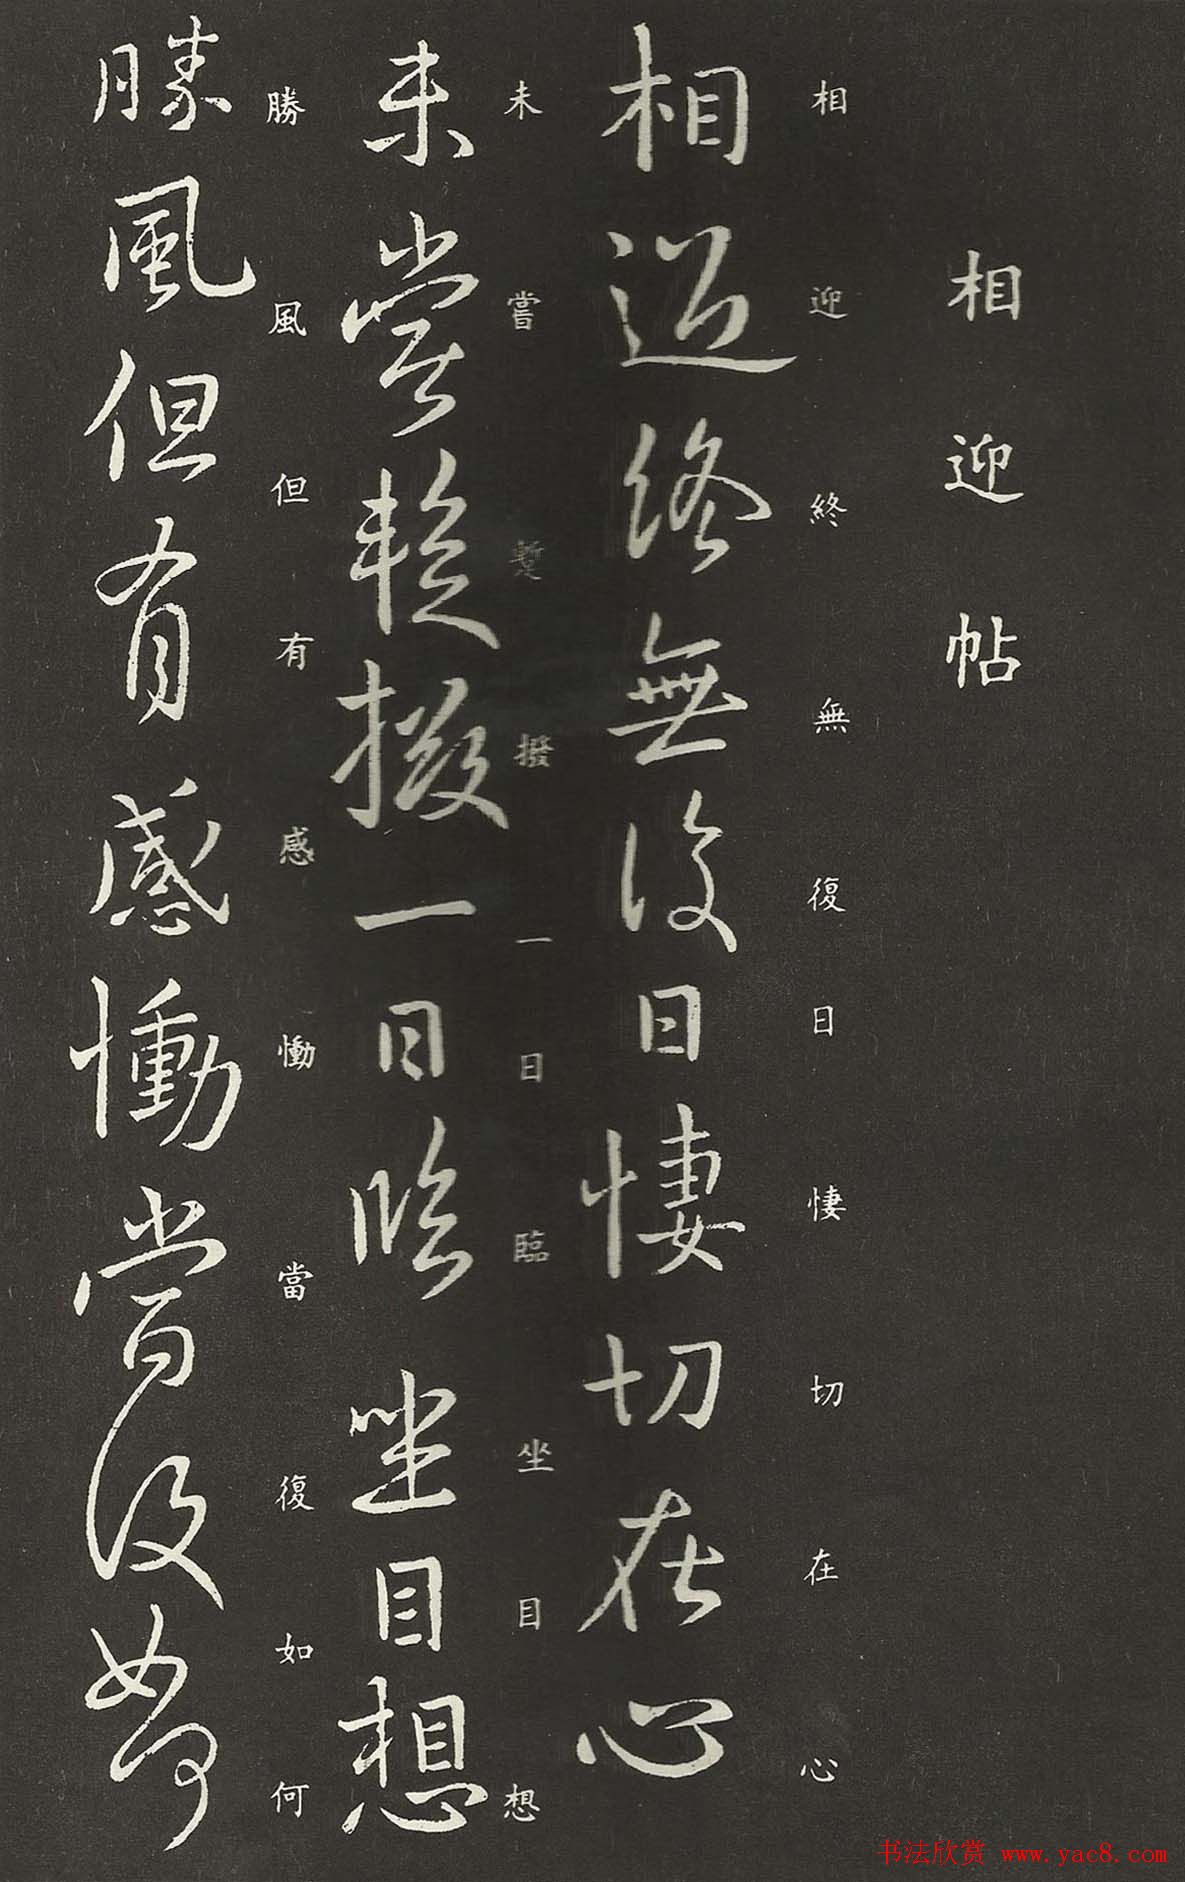 相迎帖
相迎終無復日悽切在心
相迎終無復日悽切在心
未嘗暫撥一日臨坐目想
未嘗暫撥一日臨坐目想
勝風但有感慟當復如何
勝風但有感慟當復如何
书法欣赏 www.yac8.com